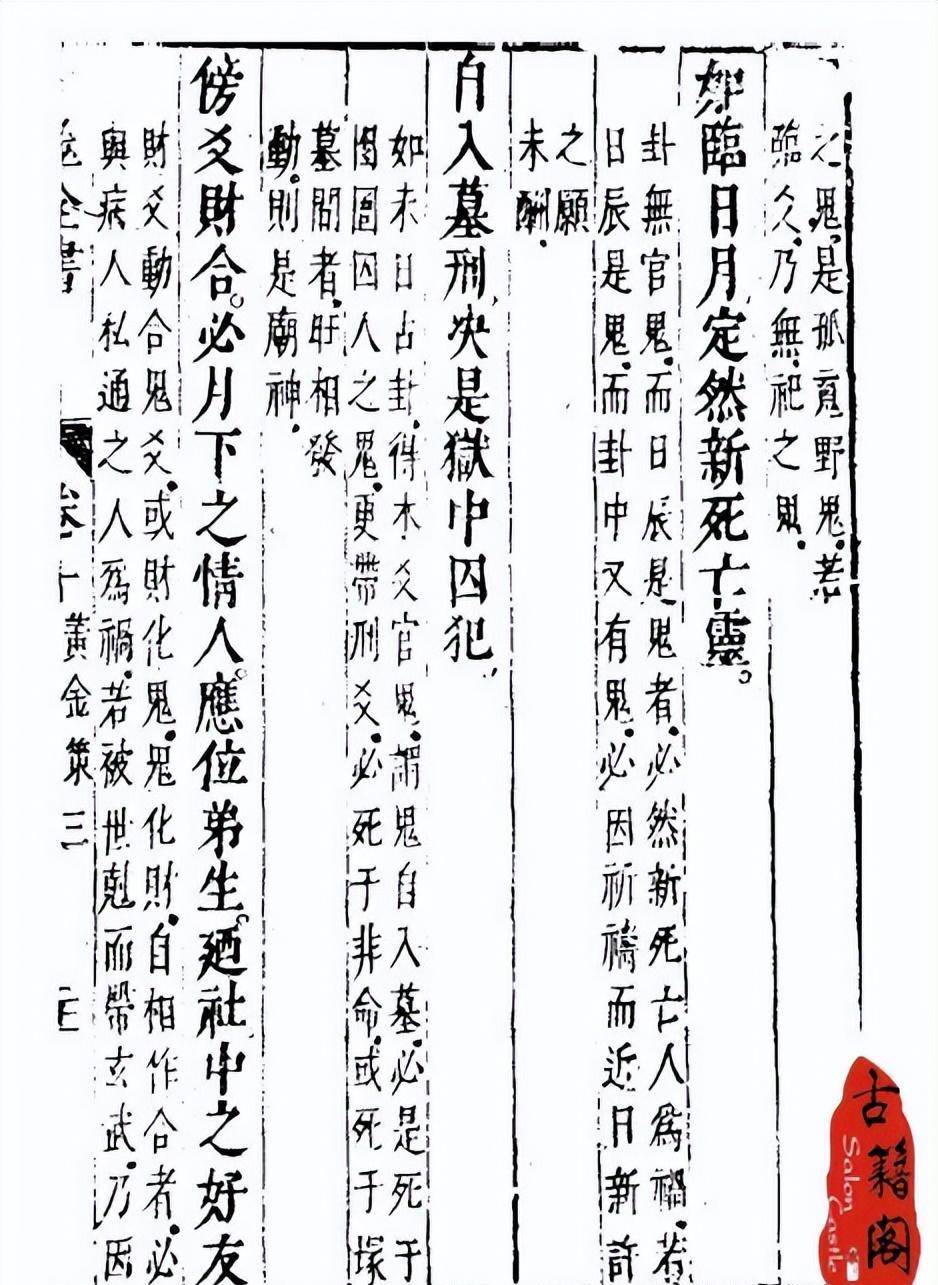 之鬼.是孤寡野鬼.若
臨乃無祀之鬼.
如臨日月.定然新死亡靈。
卦無官鬼.而日辰是鬼者.必然新死亡人爲禍.若
日辰是鬼.而卦中又有鬼.必因祈禱而近日新許
之願
未酬.
自入墓刑.決是獄中囚犯.
如未日占卦.得木爻官鬼.謂鬼自入墓.必是死于
囹圄囚人之鬼.更帶刑爻.必死于非命.或死于塚
墓間者.旺相發
動.則是廟神.
傍爻財合。必月下之情人。應位弟生。廼社中之好友
財爻動合鬼爻.或財化鬼.鬼化財.自相作合者.必
與病人私通之人爲禍.若被世剋而帶玄武.乃因
全書 卷十 黃金策三
古籍阁
Salon Castle